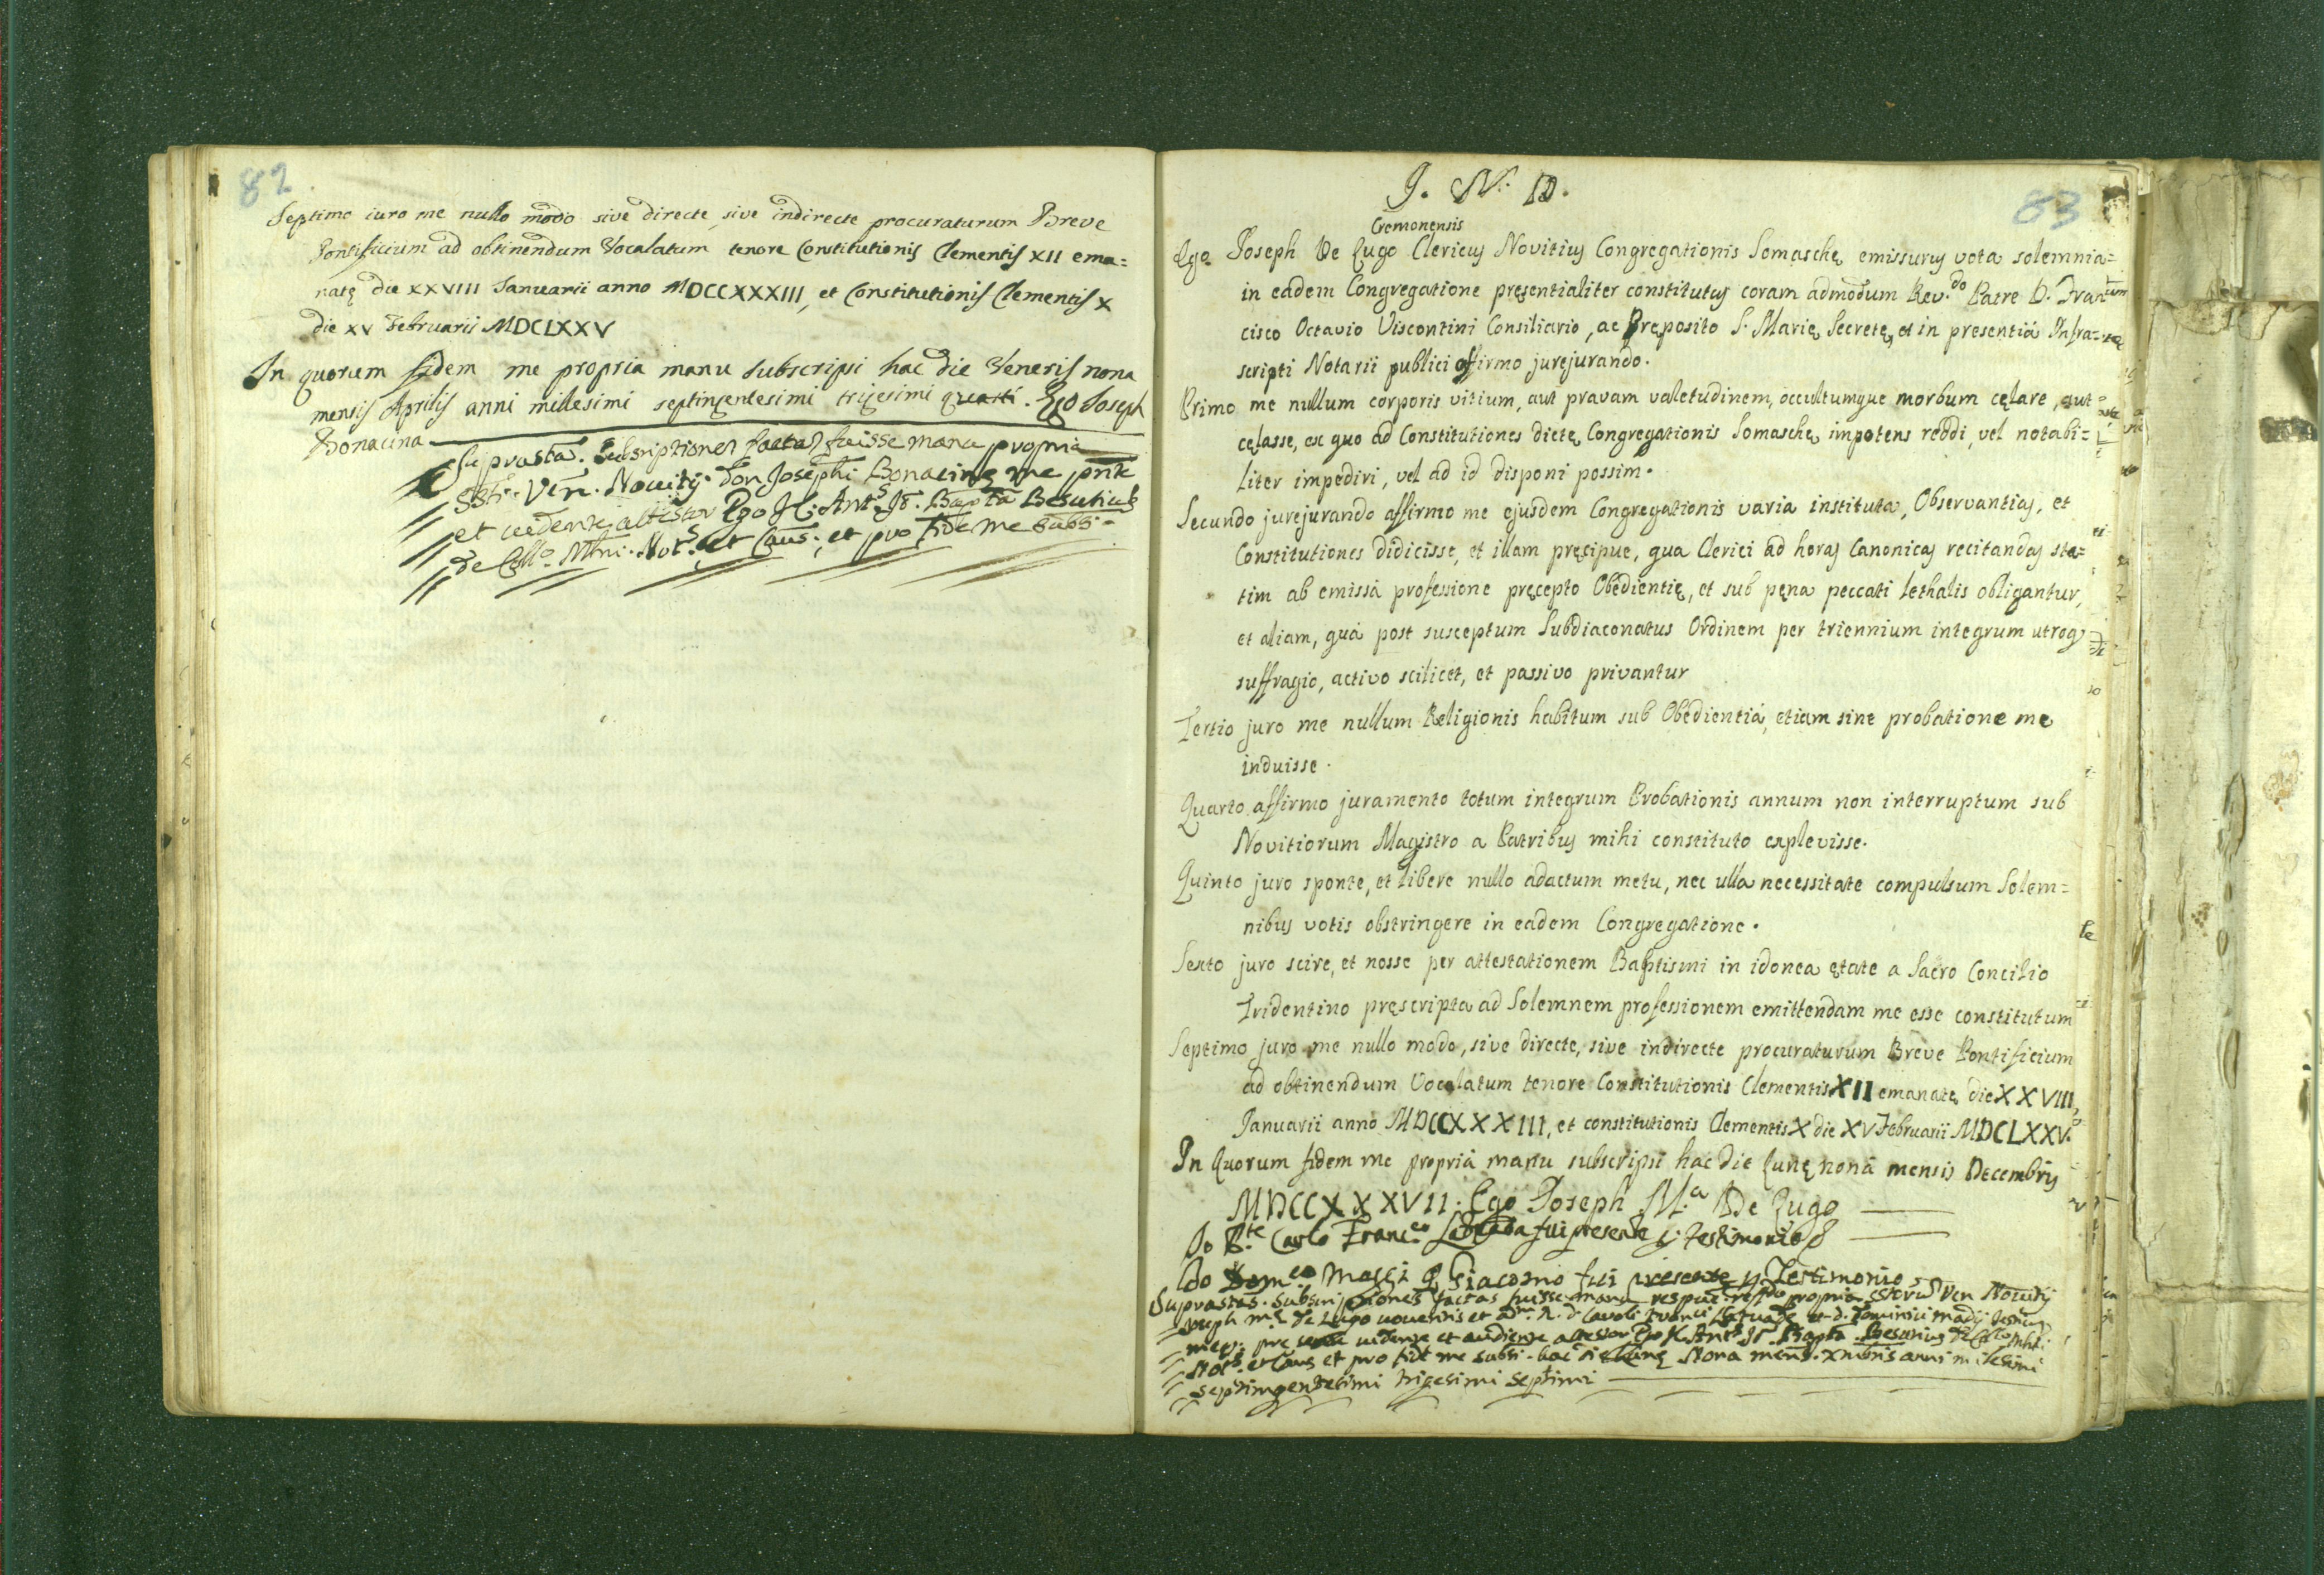 82
Septimo iuro me nullo modo sive directe, sive indirecte procuraturum Breve
Pontificium ad obtinendum Vocalatum tenore Constitutionis Clementis XII ema=
natę die XXVIII Januarii anno MDCCXXXIII, et Constitutionis Clementis X
die XV Februarii MDCLXXV
In quorum fidem me propria manu subscripsi hac die Veneris nona
mensis Aprilis anni millesimi septingentesimi trigesimi quarti. Ego Joseph
Bonacina
Suprasta. Subscriptiones factas fuisse manu propria
Ven. Novitij Don Josephi Bonacinę me pnte
et vedente attestor Ego J. C. Ant.s Jo. Bapta Besutius
de Coll.o Mlni. Not.s et Caus. et pro fide me subsi
83
J. M. D.
Cremonensis
Ego Joseph De Lugo Clericus Novitius Congregationis Somaschę emissurus vota solemnia=
in eadem Congregatione pręsentialiter constitutus coram admodum Rev.do Patre D. Fran
cisco Octavio Viscontini Consiliario, ac Pręposito S. Marię Secretę, et in presentiá Infra=
scripti Notarii publici affirmo jurejurando.
Primo me nullum corporis vitium, aut pravam valetudinem, occultumque morbum cęlare, aut
cęlasse, ex quo ad Constitutiones dictę Congregationis Somaschę impotens reddi, vel notabi=
liter impediri, vel ad id disponi possim.
Secundo jurejurando affirmo me ejusdem Congregationis varia instituta, Observantias, et
Constitutiones didicisse, et illam pręcipue, qua Clerici ad horas Canonicas recitandas sta=
tim ab emissá professione pręcepto Obedientię, et sub pęna peccati lethalis obligantur,
et aliam, quá post susceptum Subdiaconatus Ordinem per triennium integrum utroq
suffragio, activo scilicet, et passivo privantur
Tertio juro me nullum Religionis habitum sub Obedientiá, etiam sine probatione me
induisse.
Quarto affirmo juramento totum integrum Probationis annum non interruptum sub
Novitiorum Magistro a Patribus mihi constituto explevisse.
Quinto juro sponte, et libere nullo adactum metu, nec ulla necessitate compulsum Solem=
nibus votis obstringere in eadem Congregatione.
Sexto juro scire, et nosse per attestationem Baptismi in idonea ętate a Sacro Concilio
Tridentino pręscripta ad Solemnem professionem emittendam me esse constitutum
Septimo juro me nullo modo, sive directe, sive indirecte procuraturum Breve Pontificium
ad obtinendum Vocalatum tenore Constitutionis Clementis XII emanatę die XXVIII
Januarii anno MDCCXXXIII, et constitutionis Clementis X die XV Februarii MDCLXXV.
In Quorum fidem me propriá manu subscripsi hac die Lunę noná mensis Decembris
MDCCXXXVII. Ego Joseph M.a De Lugo
Io P.te Carlo Franc.o fui presente p. testimonio
Io Dom.co Maggi q. Giacomo fui presente p. Testimonio
Suprastas. Subscriptiones factas fuisse manu propria Ven Novitij
Joseph M.a de Lugo
et audiente attestor Ego J. C. Ant.s Jo. Bapta Besutius de Coll.o Mlni.
Not.s et Caus et pro fide me subsi. hac die Lunę Nona mens. Xmbris anni millesimi
septimgentesimi trigesimi septimi